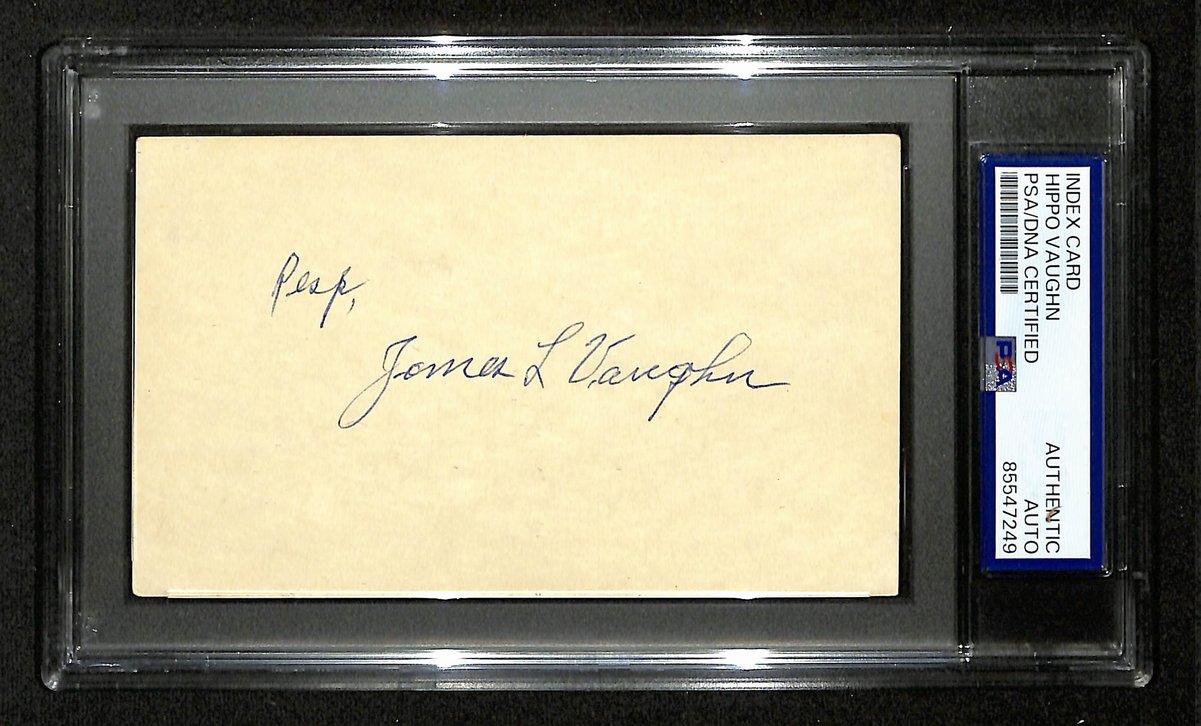 Resp,
James L Vaughn
INDEX CARD
HIPPO VAUGHN
PSA/DNA CERTIFIED
AUTHENTIC
AUTO
85547249
PSA